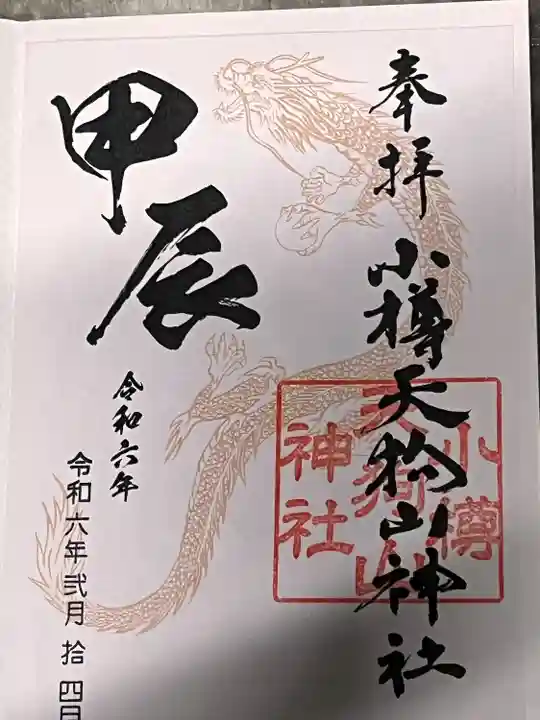 奉拝
小樽天狗山神社
小樽
天狗山
神社
甲辰
令和六年
令和六年弐月拾四日